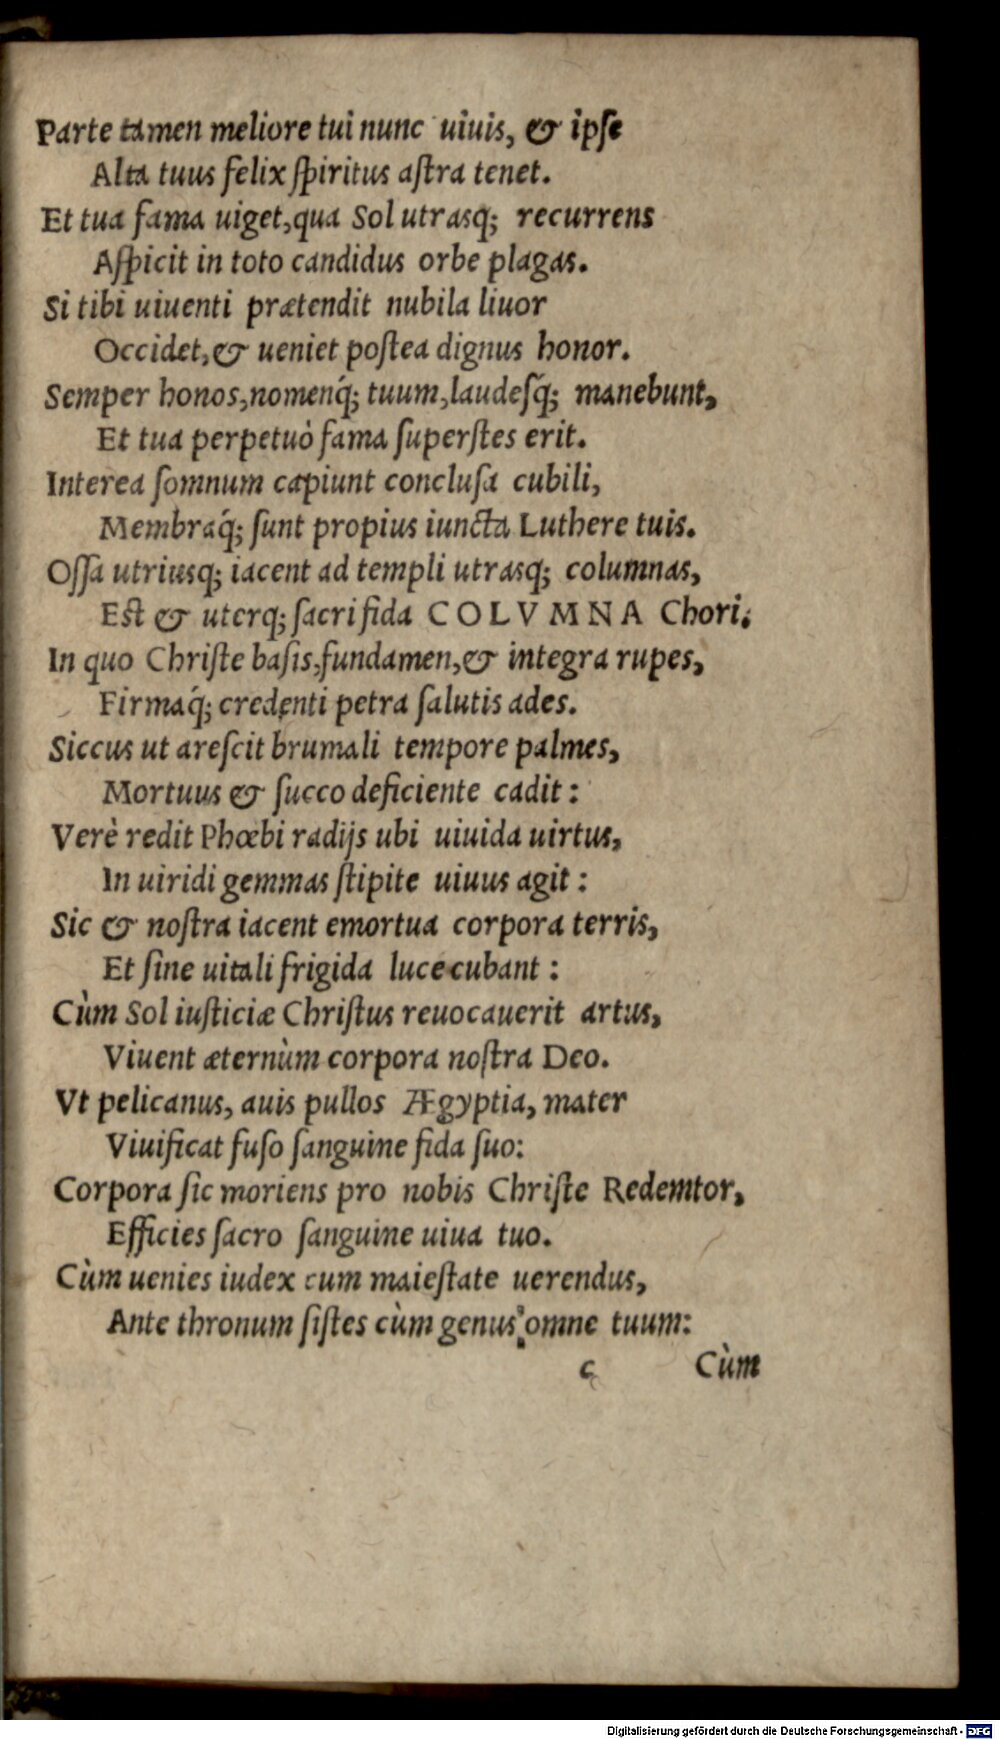 Parte tamen meliore tui nunc uiuis, & ipſe
Alta tuus felix ſpiritus aſtra tenet.
Et tua fama uiget, qua Sol utrasq; recurrens
Aſpicit in toto candidus orbe plagas.
Si tibi uiuenti prætendit nubila liuor
Occidet, & ueniet poſtea dignus honor.
Semper honos, nomenq́; tuum, laudeſq́; manebunt,
Et tua perpetuò fama ſuperſtes erit.
Interea ſomnum capiunt concluſa cubili,
Membraq́; ſunt propius iuncta Luthere tuis.
Oſſa utriusq; iacent ad templi utrasq; columnas,
Eſt & uterq; ſacri fida COLVMNA Chori.
In quo Chriſte baſis, fundamen, & integra rupes,
Firmaq́; credenti petra ſalutis ades.
Siccus ut areſcit brumali tempore palmes,
Mortuus & ſucco deficiente cadit:
Verè redit Phœbi radijs ubi uiuida uirtus,
In uiridi gemmas ſtipite uiuus agit:
Sic & noſtra iacent emortua corpora terris,
Et ſine uitali frigida luce cubant:
Cùm Sol iuſticiæ Chriſtus reuocauerit artus,
Viuent æternùm corpora noſtra Deo.
Vt pelicanus, auis pullos Ægyptia, mater
Viuificat fuſo ſanguine fida ſuo:
Corpora ſic moriens pro nobis Chriſte Redemtor,
Efficies ſacro ſanguine uiua tuo.
Cùm uenies iudex cum maieſtate uerendus,
Ante thronum ſiſtes cùm genus omne tuum:
c Cùm
Digitalisierung gefördert durch die Deutsche Forschungsgemeinschaft - DFG